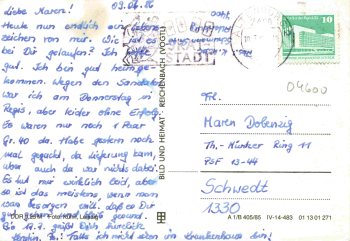 liebe Maren!
09.06.86
Heute nun endlich ein Lebens-
zeichen von mir. Wie ist es
bei Dir gelaufen? Ich hoffe
gut. Ich bin gut heimge-
kommen. Wegen den Sandalen
war ich am Donnerstag in
Regis, aber leider ohne Erfolg.
Es waren nur noch 1 Paar
Gr. 40 da. Habe gestern noch
mal geguckt, da Lieferung kam,
aber auch da war nichts dabei.
Es tut mir wirklich leid, aber
so ist das meistens, wenn man
was besorgen will.
gesund.
Bis 17.7. grüßt Dich herzlich
Falls ich nicht schon im Krankenhaus bin!
STADT
DDR
10
04600
Frl.
Maren Dobenzig
Th.-Müntzer Ring 11
PSF 13-44
Schwedt
1330
BILD UND HEIMAT · REICHENBACH (VOGTL)
A 1/B 405/85 IV-14-483 01 13 01 271